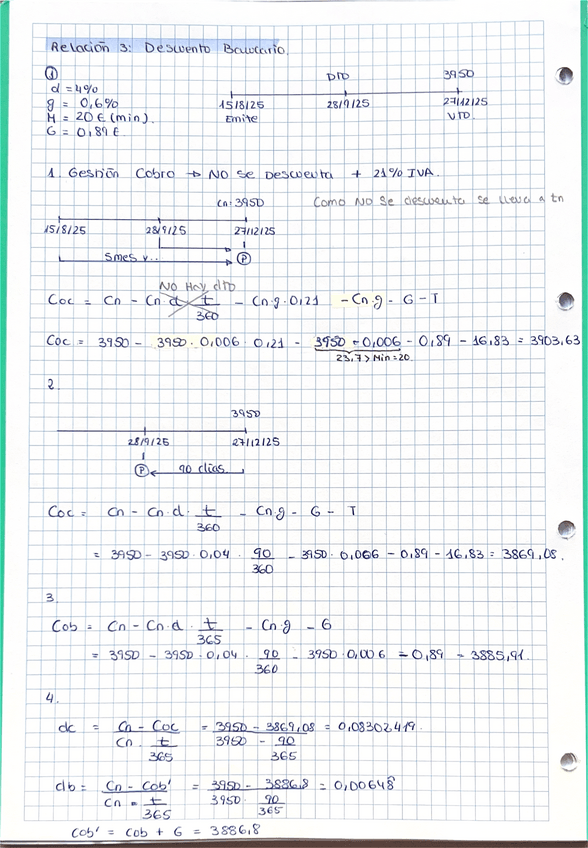 Relación 3: Descuento Bancario.
①
d = 4%
g = 0,6%
M = 20 € (min).
G = 0,89 €
DTO 3950
15/8/25 28/9/25 27/12/25
Emite VTO.
1. Gestión Cobro → NO se Descuenta + 21% IVA.
Cn: 3950 Como NO se descuenta se lleva a tn
15/8/25 28/9/25 27/12/25
5mes v... P
NO Hay dto
Coc = Cn - Cn·d · t/360 - Cn·g·0,21 - Cn·g - G - T
Coc = 3950 - 3950·0,006·0,21 - 3950·0,006 - 0,89 - 16,83 = 3903,63
23,7 > Min=20.
2.
3950
28/9/25 27/12/25
P 90 días.
Coc = Cn - Cn·d · t/360 - Cn·g - G - T
= 3950 - 3950·0,04 · 90/360 - 3950·0,006 - 0,89 - 16,83 = 3869,08.
3.
Cob = Cn - Cn·d · t/365 - Cn·g - G
= 3950 - 3950·0,04 · 90/360 - 3950·0,006 - 0,89 = 3885,91.
4.
dc = Cn - Coc / Cn · t/365 = 3950 - 3869,08 / 3950 - 90/365 = 0,08302419.
db = Cn - Cob' / Cn = t/365 = 3950 - 3886,8 / 3950· 90/365 = 0,00648
Cob' = Cob + G = 3886,8